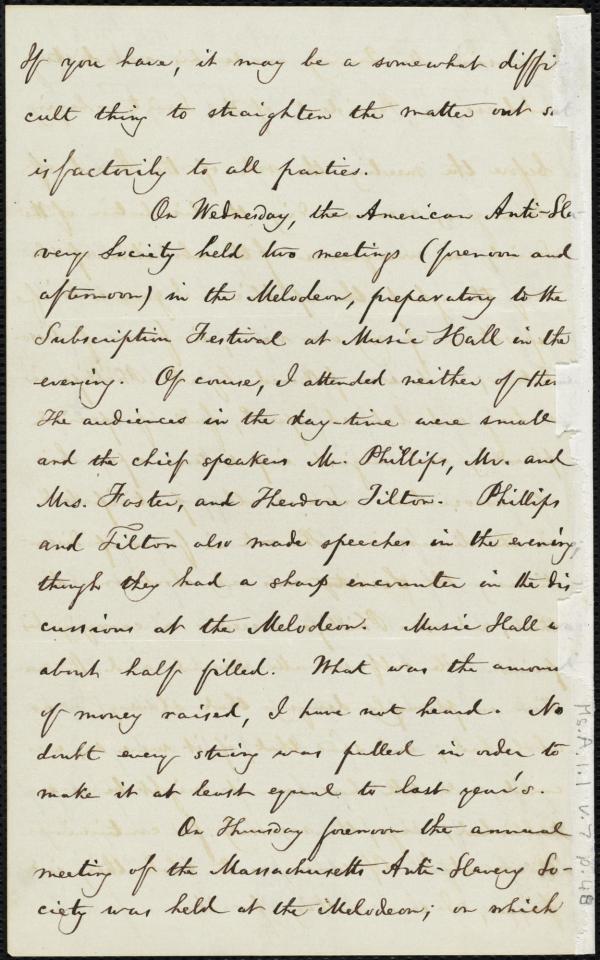 If you have, it may be a somewhat diffi
cult thing to straighten the matter out sat
isfactorily to all parties.
On Wednesday, the American Anti-Sla-
very Society held two meetings (forenoon and
afternoon) in the Melodeon, preparatory to the
Subscription Festival at Music Hall in the
evening. Of course, I attended neither of them
The audiences in the day-time were small
and the chief speakers Mr. Phillips, Mr. and
Mrs. Foster, and Theodore Tilton. Phillips
and Tilton also made speeches in the evening,
though they had a sharp encounter in the dis
cussions at the Melodeon. Music Hall w
about half filled. What was the amoun
of money raised, I have not heard. No
doubt every string was pulled in order to
make it at least equal to last year's.
On Thursday forenoon the annual
meeting of the Massachusetts Anti-Slavery So-
ciety was held at the Melodeon; on which
Ms.A.1.1 v.7 p.48